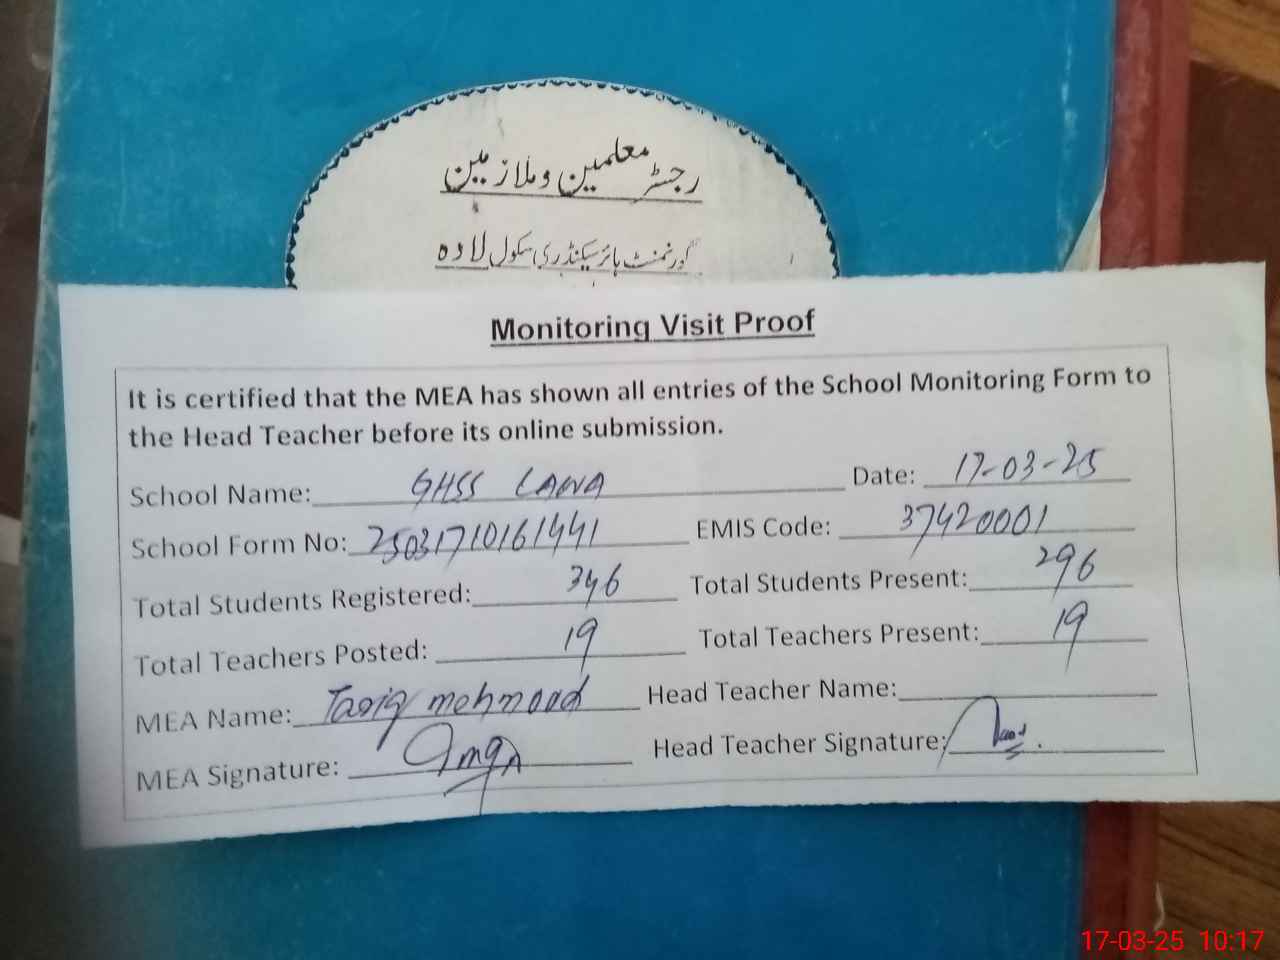 رجسٹر معلمین و ملازمین
گورنمنٹ ہائر سیکنڈری سکول لاوہ
Monitoring Visit Proof
It is certified that the MEA has shown all entries of the School Monitoring Form to
the Head Teacher before its online submission.
School Name: GHSS LAWA Date: 17-03-25
School Form No: 25031710161441 EMIS Code: 37420001
Total Students Registered: 346 Total Students Present: 296
Total Teachers Posted: 19 Total Teachers Present: 19
MEA Name: Tariq mehmood Head Teacher Name:
MEA Signature: Head Teacher Signature:
17-03-25 10:17